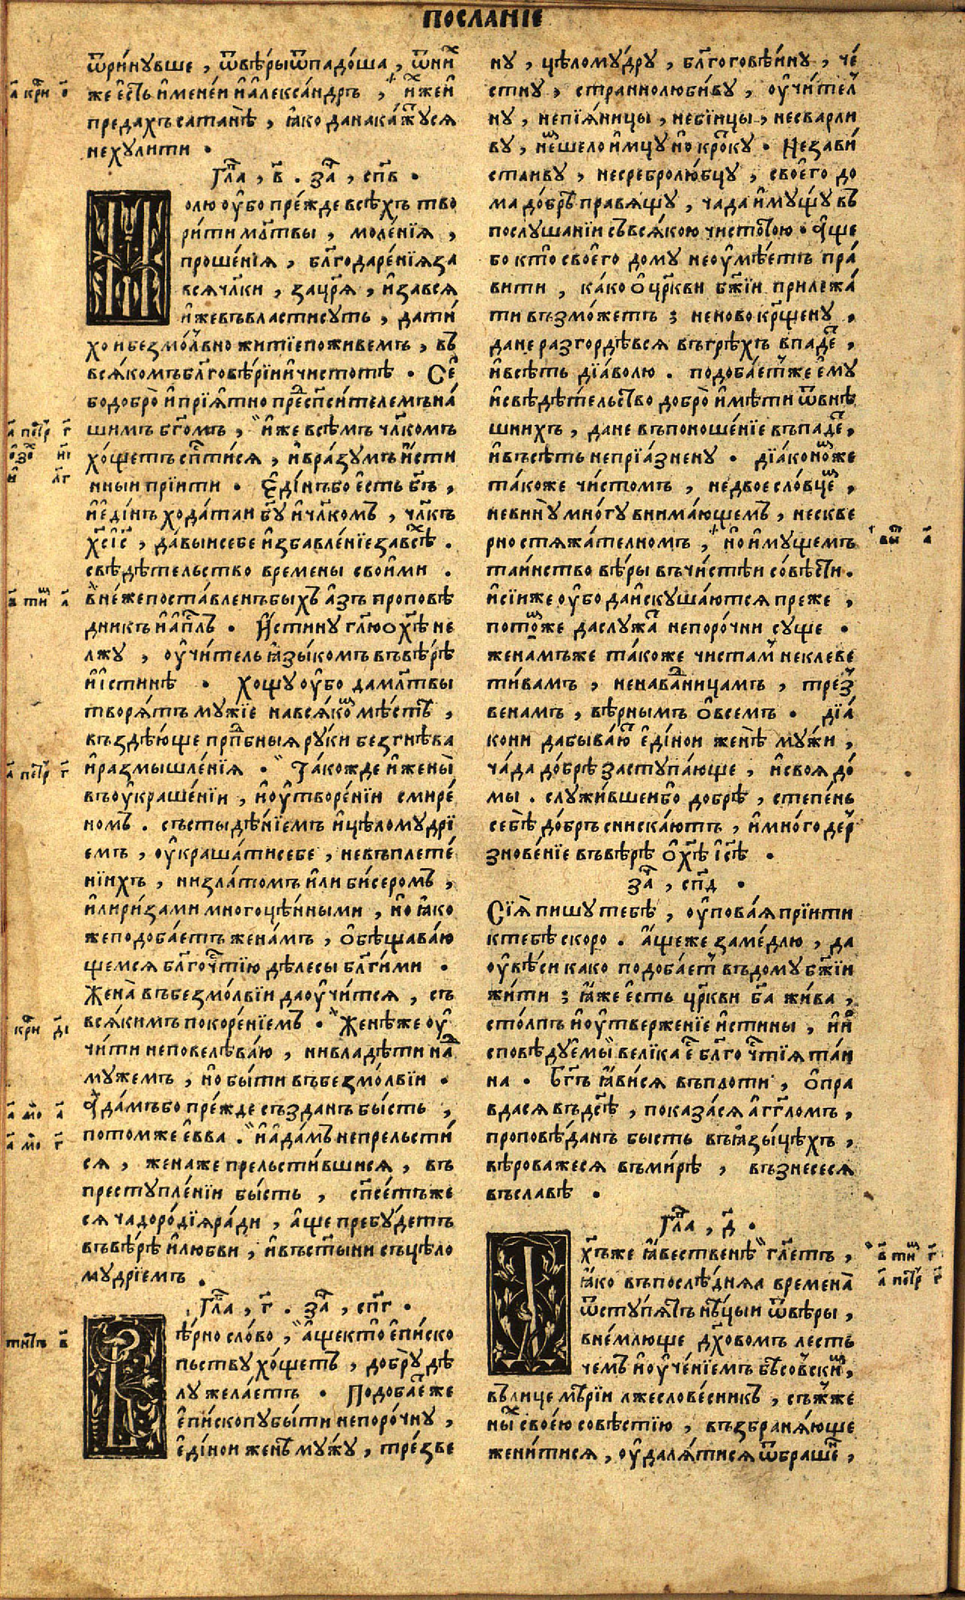 ПОСЛАНІЕ
ѿринувше , ѿвѣрыѿпадоша , ѿни
же є҆сть и҆меней и҆а҆леѯандръ , и҆хже и҆
предахъ сатанѣ , ꙗ҆ко данакажꙋтсѧ
нехулити .
Гла҃ , в҃ . за҃ , сп҃в .
Молю ѹ҆бо прежде всѣхъ тво
рити мл҃твы , моленїѧ ,
прошенїѧ , бл҃годаренїѧ за
всѧ чл҃ки , зацр҃ѧ , и҆завсѧ
и҆жевъвластисуть , дати
хо и безмолвно житїе поживемъ , въ
всѧкомъ бл҃говѣрїи и҆чистотѣ . Се
бо добро и҆ прїѧтно пред̾ сп҃сителемъ на
шимъ бг҃омъ , и҆же всѣмъ чл҃комъ
хощетъ сп҃стисѧ , и҆вразумъ и҆сти
нныи прїити . Є҆динъ бо є҆сть бг҃ъ ,
и҆ є҆динъ ходатаи бг҃у и҆ чл҃комъ , чл҃къ
хс҃ іс҃ , давыи себе и҆збавленїе за всѣ .
свѣдѣтельство времены своими .
внеже поставленъ быхъ азъ проповѣ
дникъ и҆ ап҃лъ . И҆стину гл҃ю о хѣ҃ не
лжу , ѹ҆читель ꙗ҆зыкомъ въвѣрѣ
и҆ истинѣ . хощу ѹ҆бо да мл҃твы
творѧтъ мужїе навсѧкомъ мѣстѣ ,
въздѣюще прп҃бныѧ руки безгнѣва
и҆размышленїѧ . Такожде и҆ жены
въѹ҆крашенїи , и҆ѹ҆творенїи смире
номъ . състыдѣнїемъ и҆цѣломудрї
емъ , ѹ҆крашати себе , невъплете
нїихъ , ни златомъ и҆ли бисеромъ ,
и҆лиризами многоцѣнными , но ꙗ҆ко
же подобаетъ женамъ , о҆бѣщаваю
щемсѧ бл҃гочт҃їю дѣлесы бл҃гими .
Жена въбезмолвїи даѹ҆читсѧ , съ
всѧкимъ покоренїемъ . Женѣ же ѹ҆
чити неповелѣваю , нивладѣти на
мужемъ , но быти въбезмолвїи .
А҆дамъ бо прежде създанъ бысть ,
потомже е҆вва . и҆ а҆дамъ непрельсти
сѧ , жена же прельстившисѧ , въ
преступленїи бысть , сп҃сетъ же
сѧ чадородїѧ ради , а҆ще пребудетъ
въвѣрѣ и҆любви , и҆въст҃ыни съцѣло
мудрїемъ .
Гла҃ , г҃ . за҃ , сп҃г .
Вѣрно слово , а҆ще кто е҆писко
пьству хощетъ , добру дѣ
лу желаетъ . Подобаетже
е҆пископу быти непорочну ,
е҆динои жены мужу , трезве
ну , цѣломудру , бл҃гоговѣину , че
стну , страннолюбиву , ѹ҆чител
ну , непїѧницы , небїицы , несварли
ву , нешелоимцу но кротку . Незави
стливу , несребролюбцу , своего до
ма добрѣ правѧщу , чада и҆мущу въ
послушанїи съвсѧкою чистотою . А҆ще
бо кто своего дому неѹ҆мѣетъ пра
вити , како о҆ цр҃кви бж҃їи прилежа
ти възможетъ ; неновокрщ҃ену ,
дане разгордѣвсѧ въгрѣхъ впадетъ ,
и҆всѣть дїаволю . подобаетже е҆му
и҆свѣдѣтельство добро и҆мѣти ѿвнѣ
шнихъ , дане въпоношенїе въпадетъ ,
и҆въсѣть непрїазнену . дїакономже
такоже чистомъ , недвоесловцемъ ,
невину многу внимающемъ , нескве
рностѧжателномъ , но и҆мущемъ
таинство вѣры въчистѣи совѣсти .
и҆ сїиже ѹ҆бо даискушаютсѧ преже ,
потомже даслужатъ непорочни суще .
женамъже такоже чистамъ неклеве
тивамъ , ненавадницамъ , трез
венамъ , вѣрнымъ о҆всемъ . дїа
кони да бываютъ е҆динои женѣ мужи ,
чада добрѣ заступающе , и҆своѧ до
мы . служившеибо добрѣ , степень
себѣ добръ снискаютъ , и҆много дер
зновенїе въвѣрѣ о҆ хѣ҃ іс҃ѣ .
за҃ , сп҃д .
Сїѧ пишу тебѣ , ѹ҆поваѧ прїити
ктебѣ скоро . а҆щеже замедлю , да
ѹ҆вѣси како подобаетъ въдому бж҃їи
жити ; ꙗ҆же е҆сть цр҃кви бг҃а жива ,
столпъ и҆ѹ҆тверженїе и҆стины , и҆ и҆
сповѣдуемы велїка е҆ бл҃гочт҃їѧ таи
на . Бг҃ъ ꙗ҆висѧ въплоти , о҆пра
вдасѧ въдс҃ѣ , показасѧ а҆гг҃ломъ ,
проповѣданъ бысть въꙗзыцѣхъ ,
вѣроважесѧ въмирѣ , възнесесѧ
въславѣ .
Гла҃ , д҃ .
Дхъ҃же ꙗ҆вественѣ гл҃етъ ,
ꙗ҆ко въпослѣднѧѧ времена
ѿступѧтъ нѣцыи ѿвѣры ,
внемлюще дх҃овомъ лесть
чемъ и҆ѹ҆ченїемъ бѣсовским ,
въ лицемѣрїи лжесловесникъ , съжже
ны своею совѣстїю , възбранѧюще
женитисѧ , ѹ҆далѧтисѧ ѿбрашенъ ,
а҃ кри о҃
а҃ петр г҃
а҃ петр г҃
кри д҃і
а҃ мо а҃
а҃ мо г҃
а҃ петр г҃